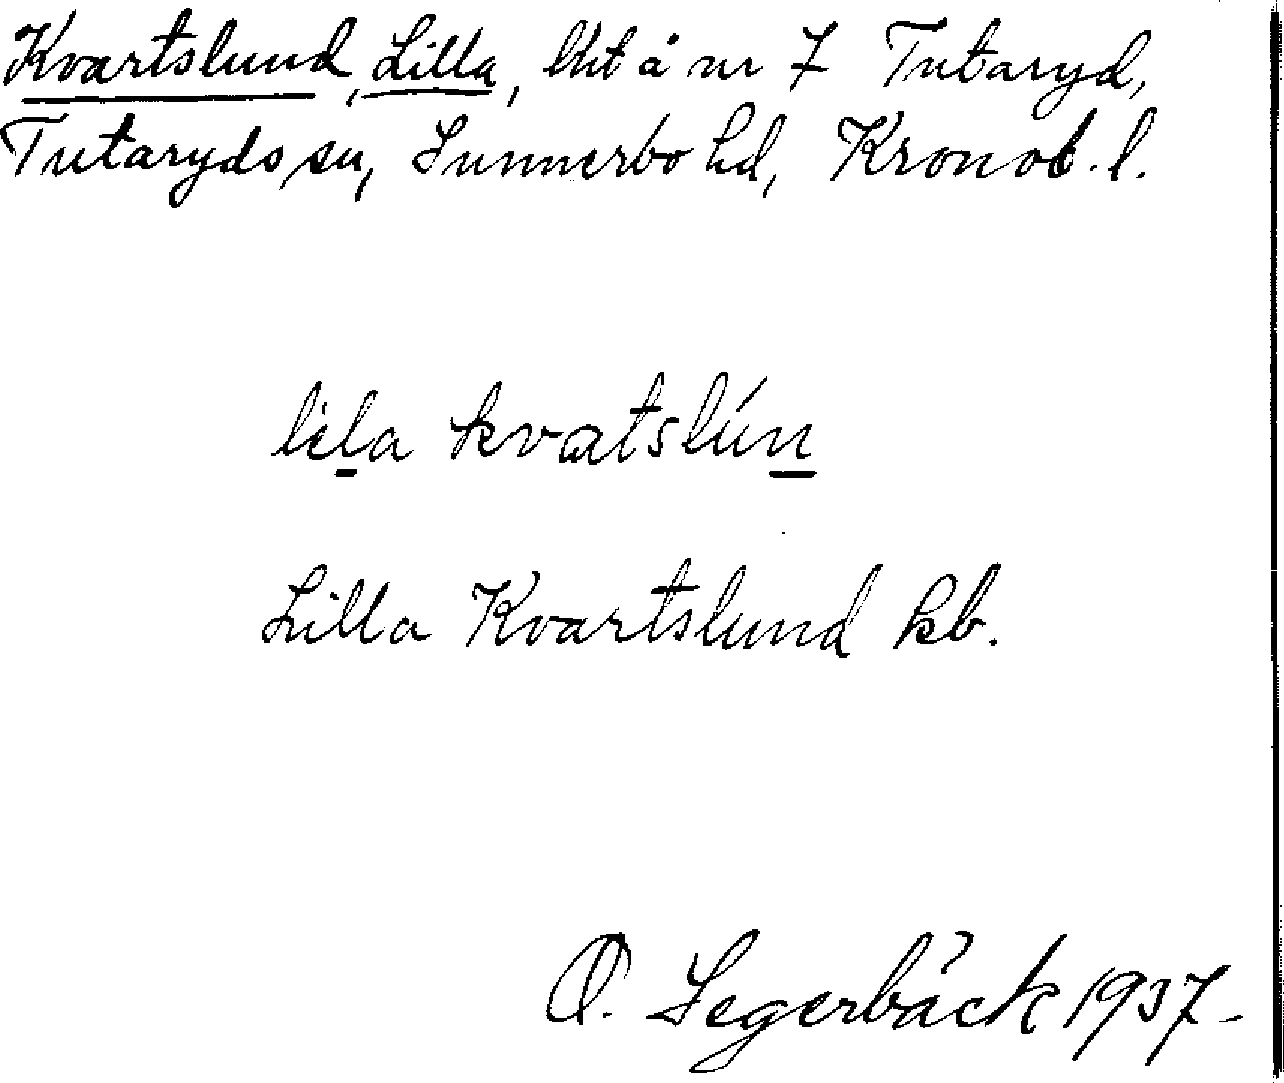 Kvartslund, Lilla, lht å nr 7 Tutaryd,
Tutaryds sn, Sunnerbo hd, Kronob. l.
lila kvatslún
Lilla Kvartslund kb.
O. Segerbäck 1937-